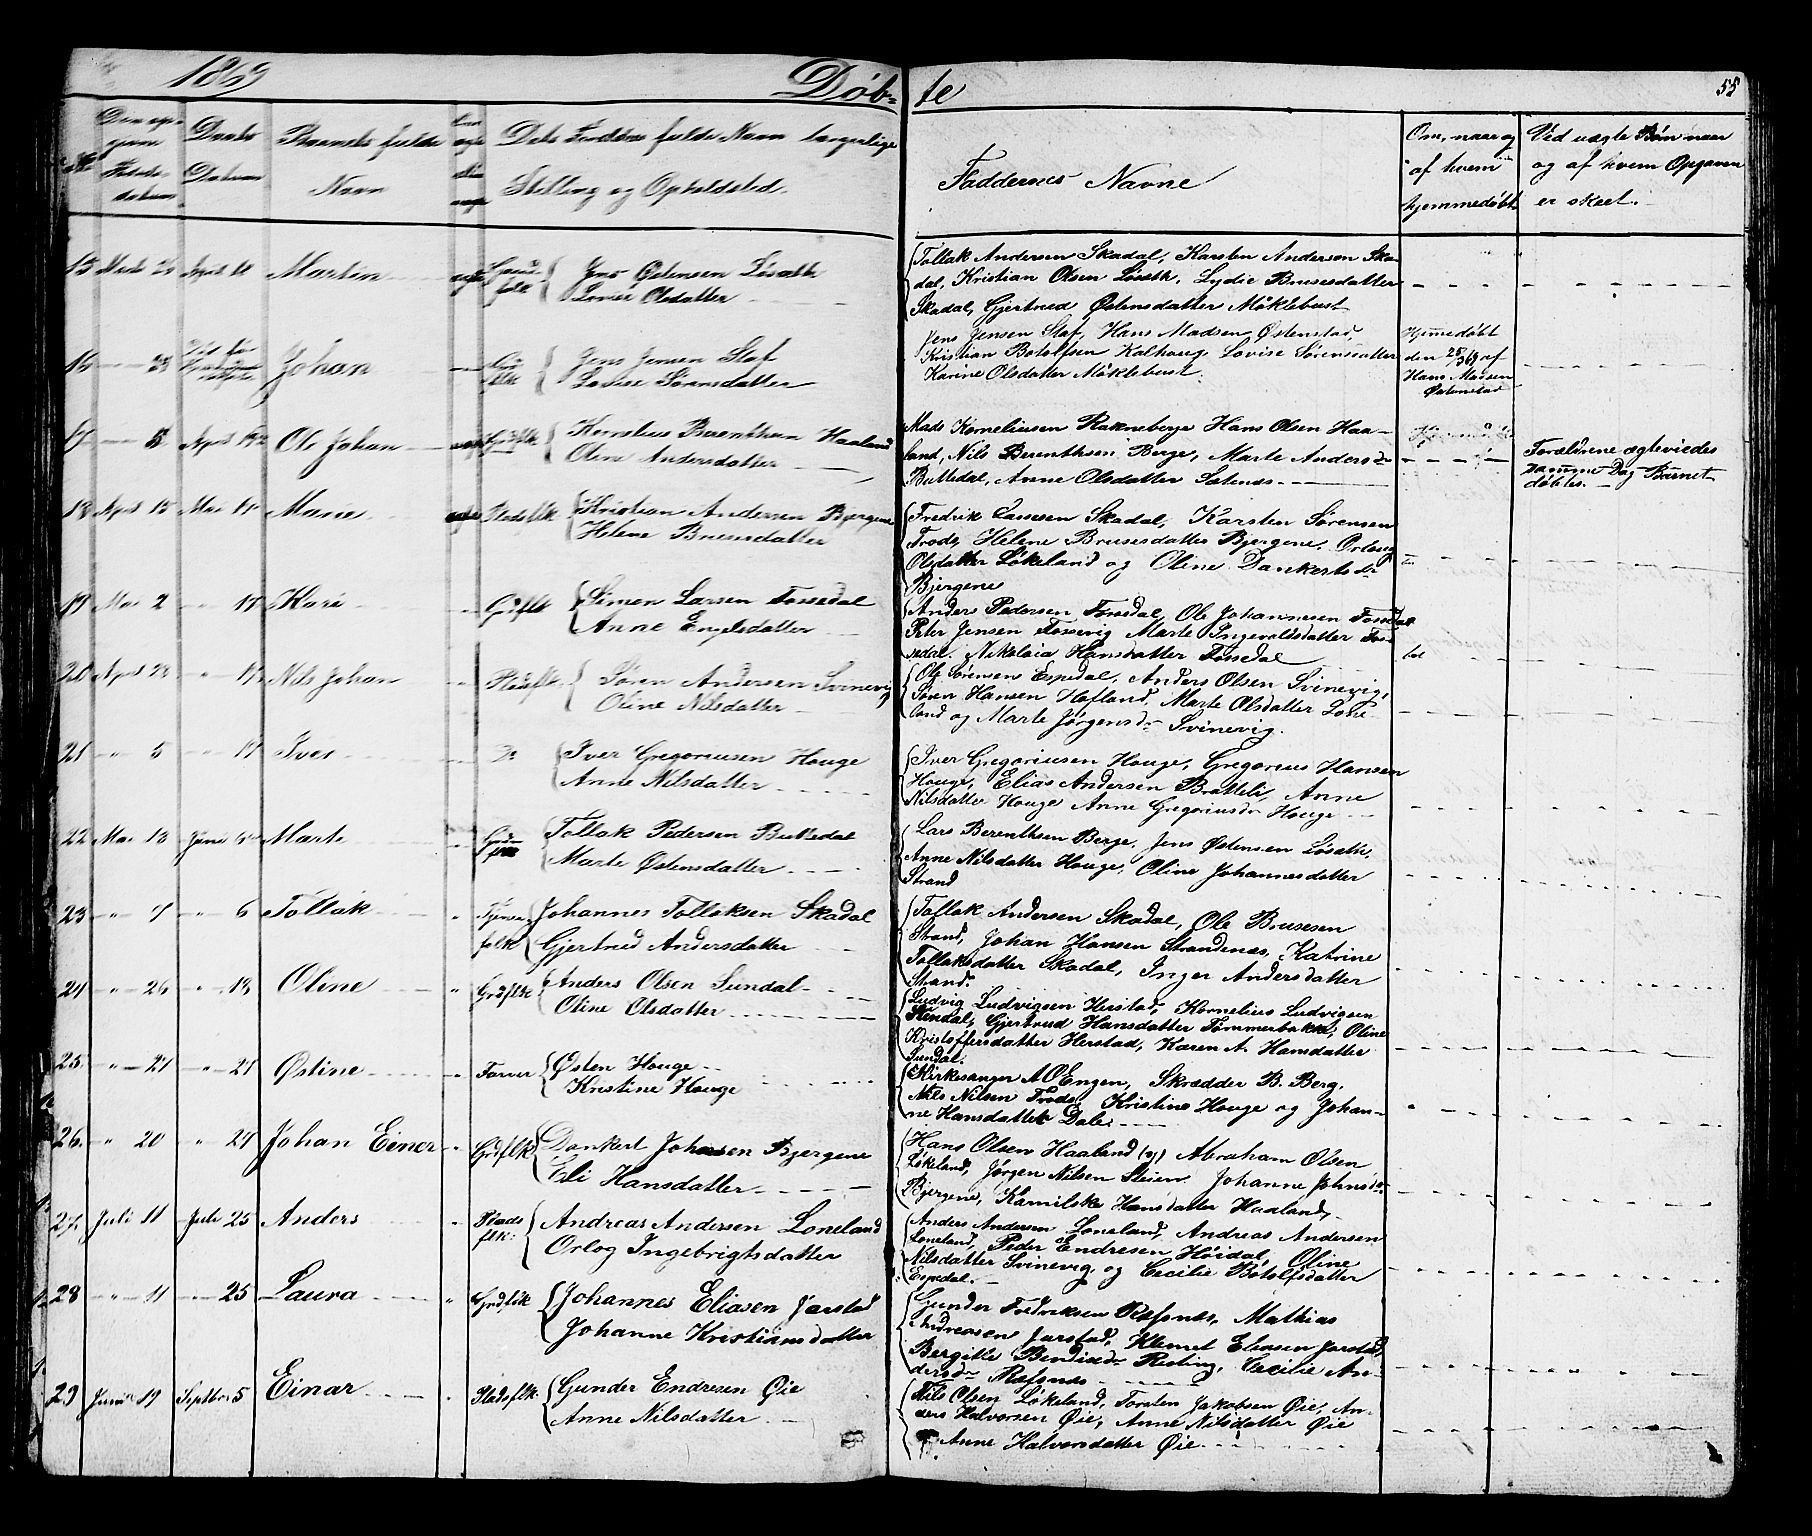 1869
Døb-
te
55
Daabs
Barnets fulde
Dets Forældres fulde Navn borgerlige
Om, naar og
Ved uægte Børn naar
Datum
Navn
Stilling og Opholdsted.
Faddernes Navne
af hvem
og af hvem Opgaven
hjemmedøbt
er skeet.
15
April 18
Martin
Jens Østensen Løsæth
Lovise Olsdatter
Tollak Andersen Skadal, Karsten Andersen Ska-
dal, Kristian Olsen Løsæth, Lydie Brusesdatter
Skadal, Gjertrud Østensdatter Møklebust
16
Johan
Jens Jensen Staf
Lovise Sørensdatter
Jens Jensen Staf, Hans Madsen Østenstad,
Kristian Botolfsen Kalhoug, Lovise Sørensdatter
Karine Olsdatter Møklebust
Hjemmedøbt
den 28/3 69 af
Hans Madsen
Østenstad
17
5
April
Ole Johan
Grdflk
Kornelius Barenthsen Haaland
Oline Andersdatter
Mads Korneliussen Rakneberge Hans Olsen Haa-
land, Nils Berenthsen Berge, Marte Andersdr
Buttedal, Anne Olsdatter Sætenæs
Forældrene ægteviedes
samme Dag Barnet
døbtes.
18
April 15
Mai
Marie
Pladsflk
Kristian Andersen Bjergene
Helene Brusesdatter
Fredrik Larssen Skadal, Karsten Sørensen
Frode, Helene Brusesdatter Bjergene,
Olsdatter Løkeland og Oline Dankertsdr
Bjergene
19
Mai 2
" 17
Kari
Grdflk
Simon Larsen Fossedal
Anne Engelsdatter
Anders Pedersen Fossdal, Ole Johannesen Fossdal
Peter Jensen Fossevig Marte Ingevoldsdatter Fos-
sedal. Nikolaia Hansdatter Fossedal
20
April
" 17
Nils Johan
Pladsflk
Søren Andersen Svinevig
Oline Nilsdatter
Ole Sørensen Espedal, Anders Olsen Svinevig,
Søren Hansen Hofland, Marte Olsdatter Lone-
land og Marte Jørgensdr Svinevig.
21
" 5
" 17
Iver
Do
Iver Gregoriusen Houge
Anne Nilsdatter
Iver Gregoriusen Houge, Gregorius Hansen
Houge, Elias Andersen Bratteli, Anne
Nilsdatter Houge Anne Gregoriusdr Houge
22
Mai 13
Juni
Marte
Tollak Pedersen Buttedal
Marte Østensdatter
Lars Berenthsen Berge, Jens Østensen Løsæth,
Anne Nilsdatter Houge, Oline Johannesdatter
Strand
23
" 7
" 6
Tollak
folk
Johannes Tollaksen Skadal
Gjertrud Andersdatter
Tollak Andersen Skadal, Ole Brusesen
Strand, Johan Hansen Strandenæs, Katrine
Tollaksdatter Skadal, Inger Andersdatter
Strand.
24
" 26
" 13
Oline
Grdflk
Anders Olsen Sundal
Oline Olsdatter
Ludvig Ludvigsen Herstad, Kornelius Ludvigsen
Stendal, Gjertrud Hansdatter Tømmerbakke, Oline
Kristoffersdatter Herstad, Karen A. Hansdatter
Sundal.
25
" 21
" 27
Østine
Farver
Østen Houge
Kristine Houge
Kirkesanger A O Engen, Skrædder B. Berg.
Nils Nilsen Frode, Kristine Houge og Johan-
ne Hansdatter Dale
26.
" 20
" 27
Johan Einer
Grdflk
Dankert Johnsen Bjergene
Eli Hansdatter
Hans Olsen Haaland Abraham Olsen
Løkeland, Jørgen Nilsen Steien Johanne Johnsdr
Bjergene, Kamilske Hansdatter Haaland,
27.
Juli 11
Juli 25
Anders
Plads
flk:
Andreas Andersen Loneland
Orlog Ingebrigtsdatter
Anders Andersen Loneland, Andreas Andersen
Loneland, Peder Endresen Høidal, Oline
Nilsdatter Svinevig, og Cecilie Botolfsdatter
Espedal.
28
" 11
" 25
Laura
Grdflk
Johannes Eliasen Jarstad
Johanne Kristiansdatter
Gunder Fredriksen Refsnes, Mathias
Andreasen Jarstad, Klemet Eliasen Jarstad,
Bergitte Bendixsdr Risting, Cecilie An-
dersdr Refsnes
29
Juni 19
Septbr 5
Einar
Pladsflk.
Gunder Endresen Øie
Anne Nilsdatter
Nils Olsen Løkeland, Torsten Jakobsen Øie, An-
ders Halvorsen Øie, Anne Nilsdatter Øie
Anne Halvorsdatter Øie